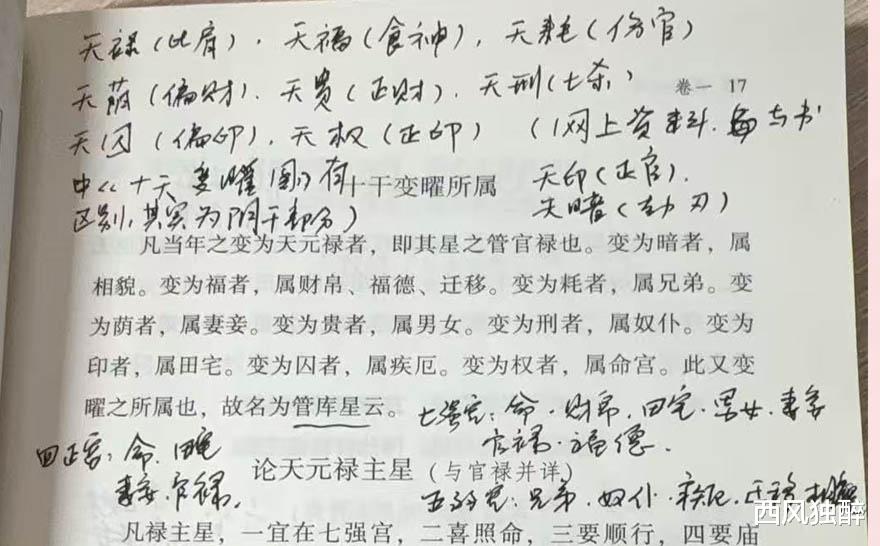 天禄(比肩)，天福(食神)，天耗(伤官)
卷一 17
天荫(偏财)、天贵(正财)、天刑(七杀)
天囚(偏印)，天权(正印) (网上资料、与书
中《十天变曜图》有
十干变曜所属
天印(正官)、
区别，其实为阴干部分)
天暗(劫刃)
凡当年之变为天元禄者，即其星之管官禄也。变为暗者，属
相貌。变为福者，属财帛、福德、迁移。变为耗者，属兄弟。变
为荫者，属妻妾。变为贵者，属男女。变为刑者，属奴仆。变为
印者，属田宅。变为囚者，属疾厄。变为权者，属命宫。此又变
曜之所属也，故名为管库星云。
七强宫：命、财帛、田宅、男女、妻妾
官禄、福德、
四正宫：命、田宅
妻妾、官禄，
论天元禄主星(与官禄并详)
五弱宫：兄弟、奴仆、疾厄、迁移、相貌
凡禄主星，一宜在七强宫，二喜照命，三要顺行，四要庙
西风独醉